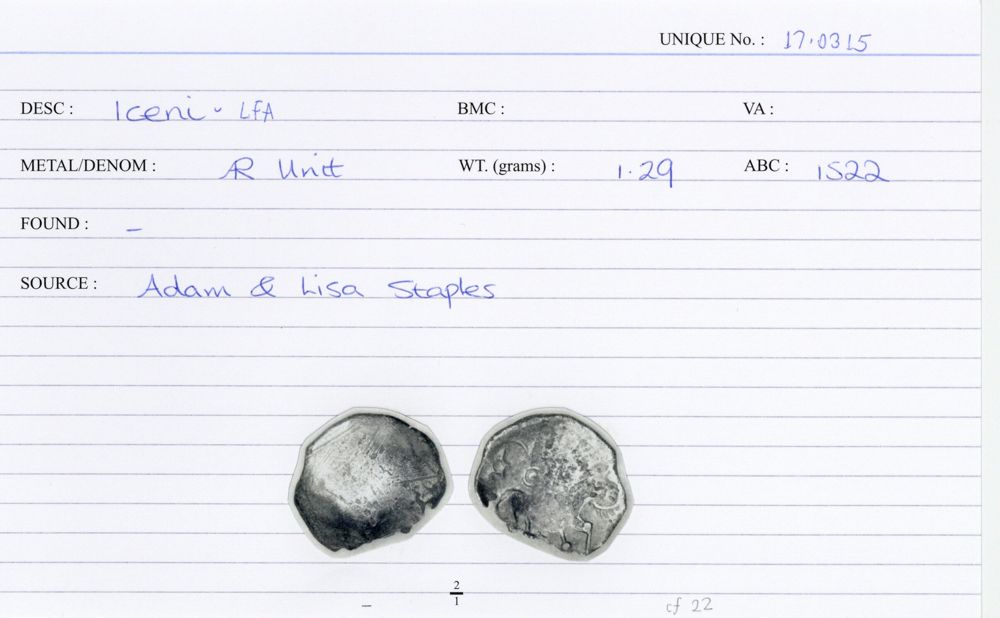 UNIQUE No. : 17.0315
DESC : Iceni - LFA BMC : VA :
METAL/DENOM : AR Unit WT. (grams) : 1.29 ABC : 1522
FOUND : –
SOURCE : Adam & Lisa Staples
2
1
– cf 22